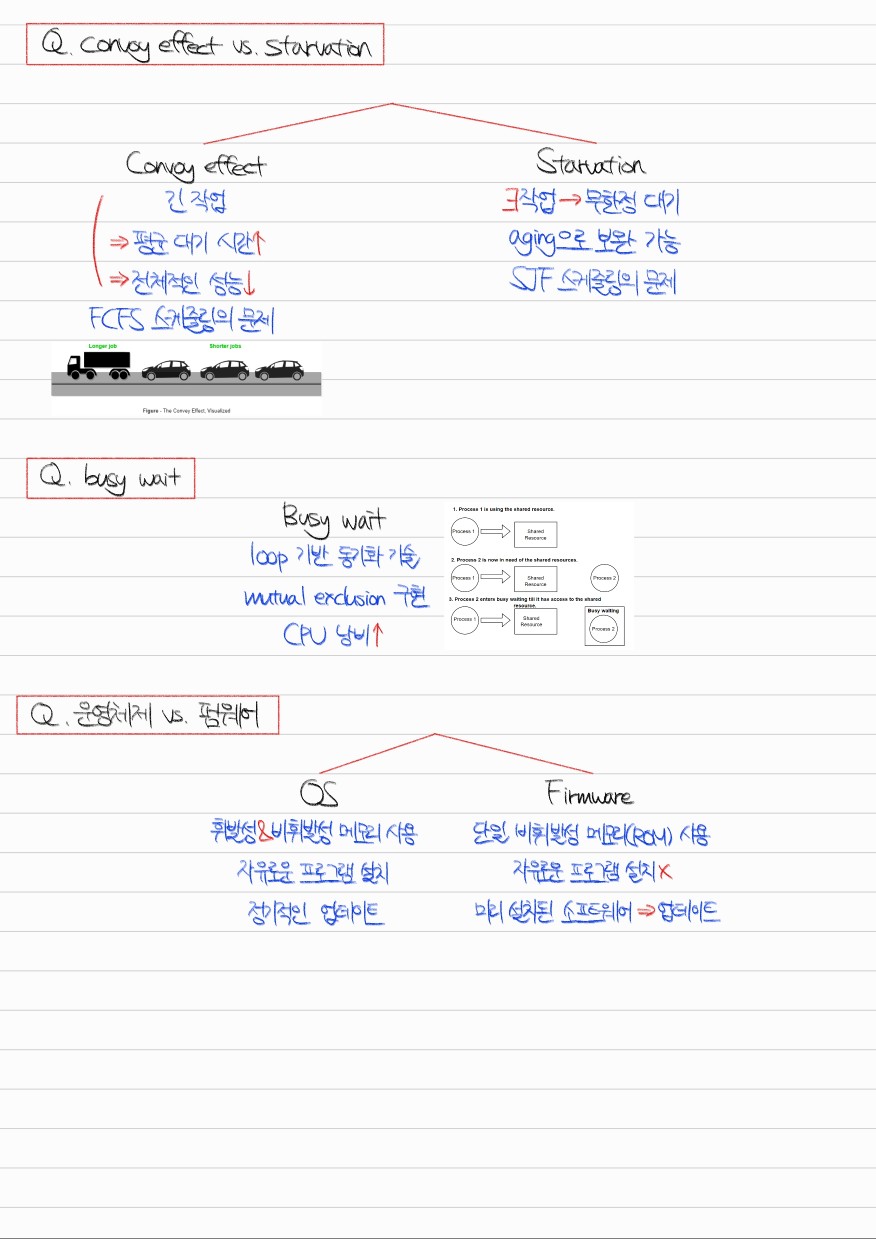 Q. Convoy effect vs. starvation
Convoy effect
긴 작업
⇒ 평균 대기 시간↑
⇒ 전체적인 성능↓
FCFS 스케줄링의 문제
Longer job Shorter jobs
Figure - The Convey Effect, Visualized
Starvation
ㅋ작업 → 무한정 대기
aging으로 보완 가능
SJF 스케줄링의 문제
Q. busy wait
Busy wait
loop 기반 동기화 기술
mutual exclusion 구현
CPU 낭비↑
1. Process 1 is using the shared resource.
Process 1
Shared
Resource
2. Process 2 is now in need of the shared resources.
Process 1
Shared
Resource
Process 2
3. Process 2 enters busy waiting till it has access to the shared
resource.
Process 1
Shared
Resource
Busy waiting
Process 2
Q. 운영체제 vs. 펌웨어
OS
휘발성&비휘발성 메모리 사용
자유로운 프로그램 설치
정기적인 업데이트
Firmware
단일 비휘발성 메모리(ROM) 사용
자유로운 프로그램 설치 X
미리 설치된 소프트웨어 ⇒ 업데이트